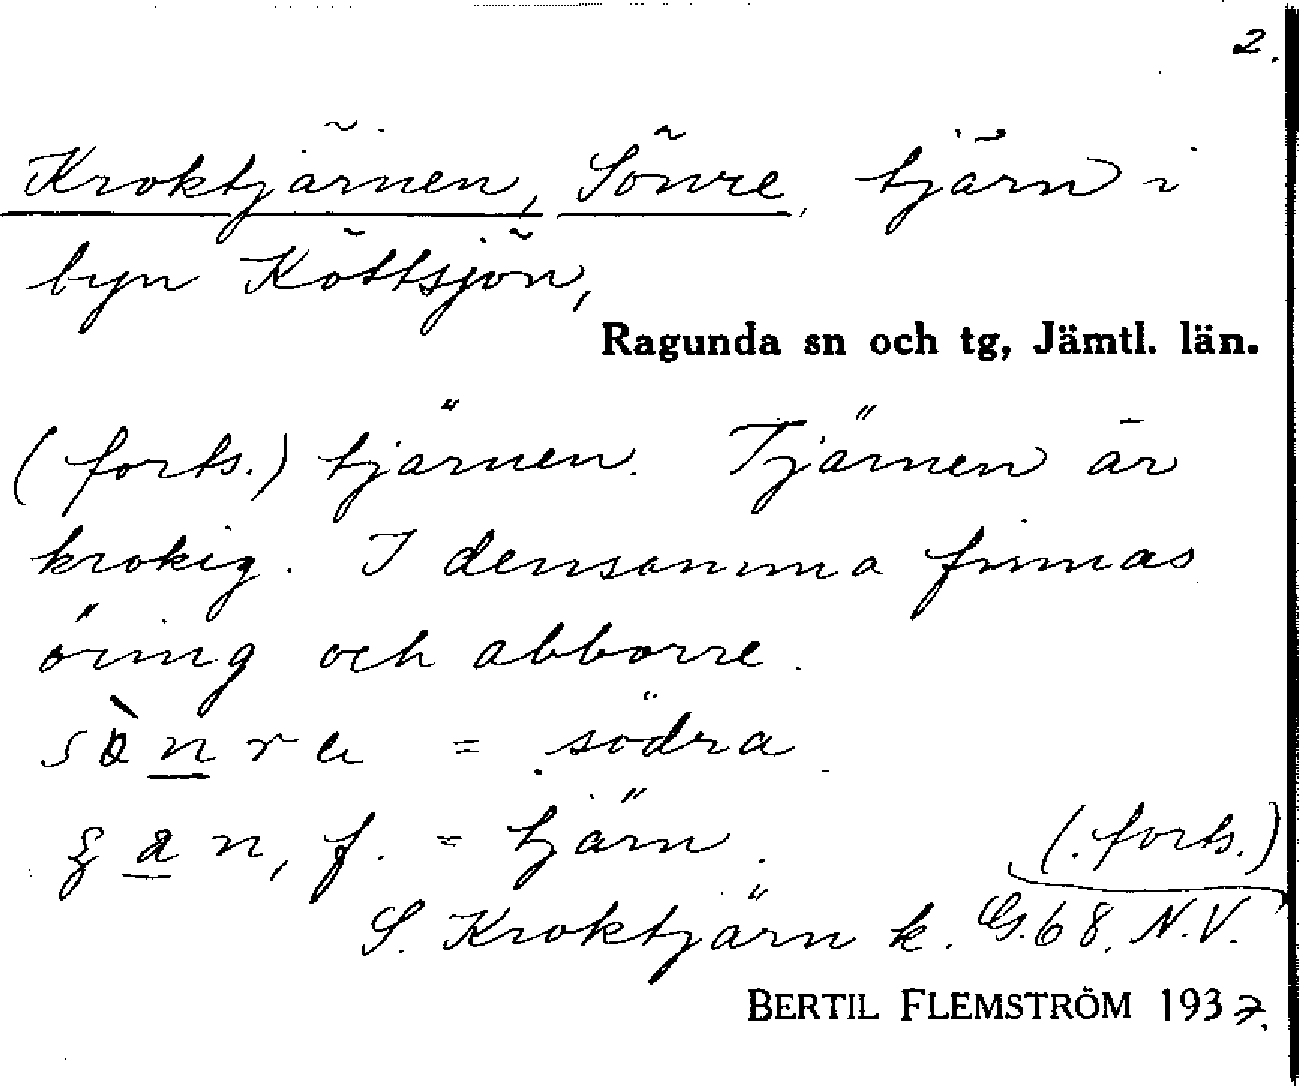 2.
Kroktjärnen, Sönre, tjärn i
byn Köttsjön,
Ragunda sn och tg, Jämtl. län.
(forts.) tjärnen. Tjärnen är
krokig. I densamma finnas
öring och abborre.
= södra
f. = tjärn.
(forts.)
S. Kroktjärn k. G. 68. N.V.
BERTIL FLEMSTRÖM 1937.